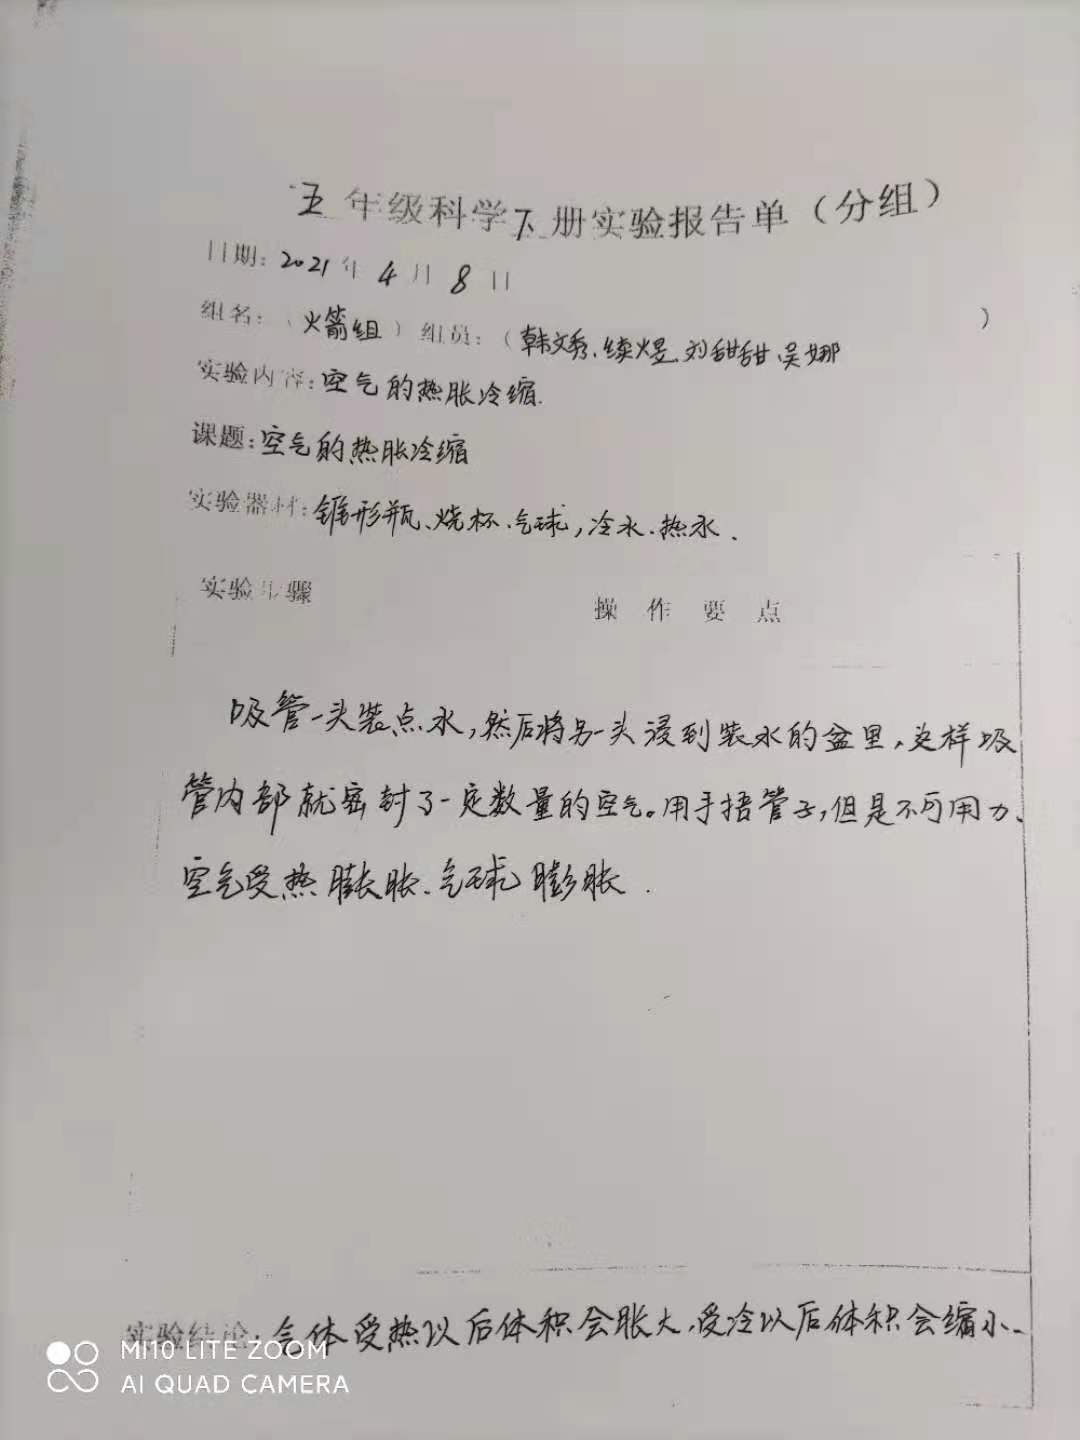 五年级科学下册实验报告单（分组）
日期：2021年4月8日
组名：（火箭组）组员：（韩文秀、续煜、刘甜甜、吴娜）
实验内容：空气的热胀冷缩.
课题：空气的热胀冷缩
实验器材：锥形瓶、烧杯、气球，冷水、热水.
实验步骤
操作要点
吸管一头装点水，然后将另一头浸到装水的盆里，这样吸
管内部就密封了一定数量的空气。用手捂管子，但是不可用力、
空气受热膨胀、气球膨胀.
实验结论：气体受热以后体积会胀大，受冷以后体积会缩小、
MI10 LITE ZOOM
AI QUAD CAMERA